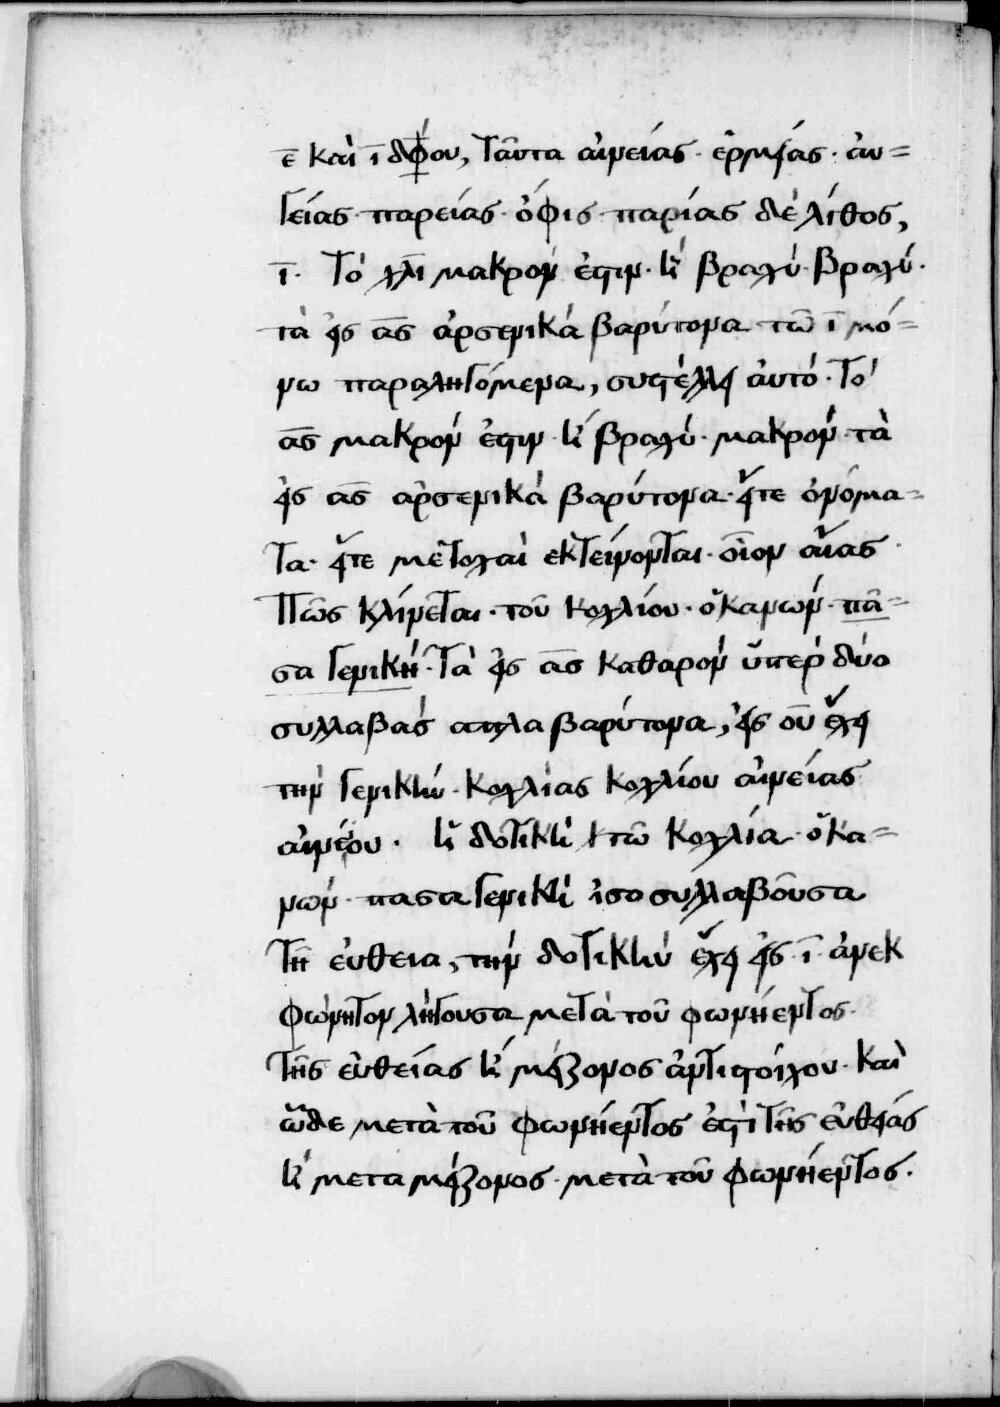 ε καὶ ῑ διφθόγγου, ταῦτα αἰνείας· ἑρμείας· αὐ=
γείας· παρείας· ὄφις· παρίας δὲ λίθος,
ῑ· Τὸ λι μακρόν ἐστιν· ἢ βραχύ· βραχύ·
τὰ εἰς ας ἀρσενικὰ βαρύτονα τῶ ῑ μό=
νω παραληγόμενα, συστέλλει αὐτό· Τὸ
ας μακρόν ἐστιν· ἢ βραχύ· μακρόν· τὰ
εἰς ας ἀρσενικὰ βαρύτονα· εἴτε ὀνόμα=
τα· εἴτε μετοχαὶ ἐκτείνονται· οἷον αἴας·
Πῶς κλίνεται· τοῦ κοχλίου· ὁ κανών· πᾶ=
σα γενική· Τὰ εἰς ας καθαρὸν ὑπὲρ δύο
συλλαβὰς απλα βαρύτονα, εἰς ου ἔχει
τὴν γενικὴν· κοχλίας κοχλίου αἰνείας
αἰνείου· ἡ δοτικὴ τῶ κοχλία· ὁ κα=
νών· πασα γενικὴ ἰσοσυλλαβοῦσα
τῆ εὐθεια, τὴν δοτικὴν ἔχει εἰς ῑ ἀνεκ
φώνητον λήγουσα μετὰ τοῦ φωνήεντος·
τῆς εὐθείας ἢ μείζονος ἀντιστοίχου· καὶ
ὧδε μετὰ τοῦ φωνήεντος ἐστὶ τῆς εὐθείας
ἢ μετα μείζονος· μετὰ τοῦ φωνήεντος·